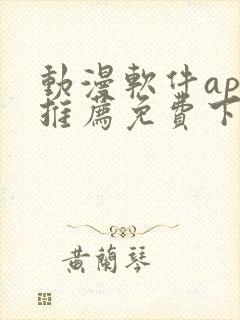 動漫軟件ap
推薦免費下
黃蘭琴